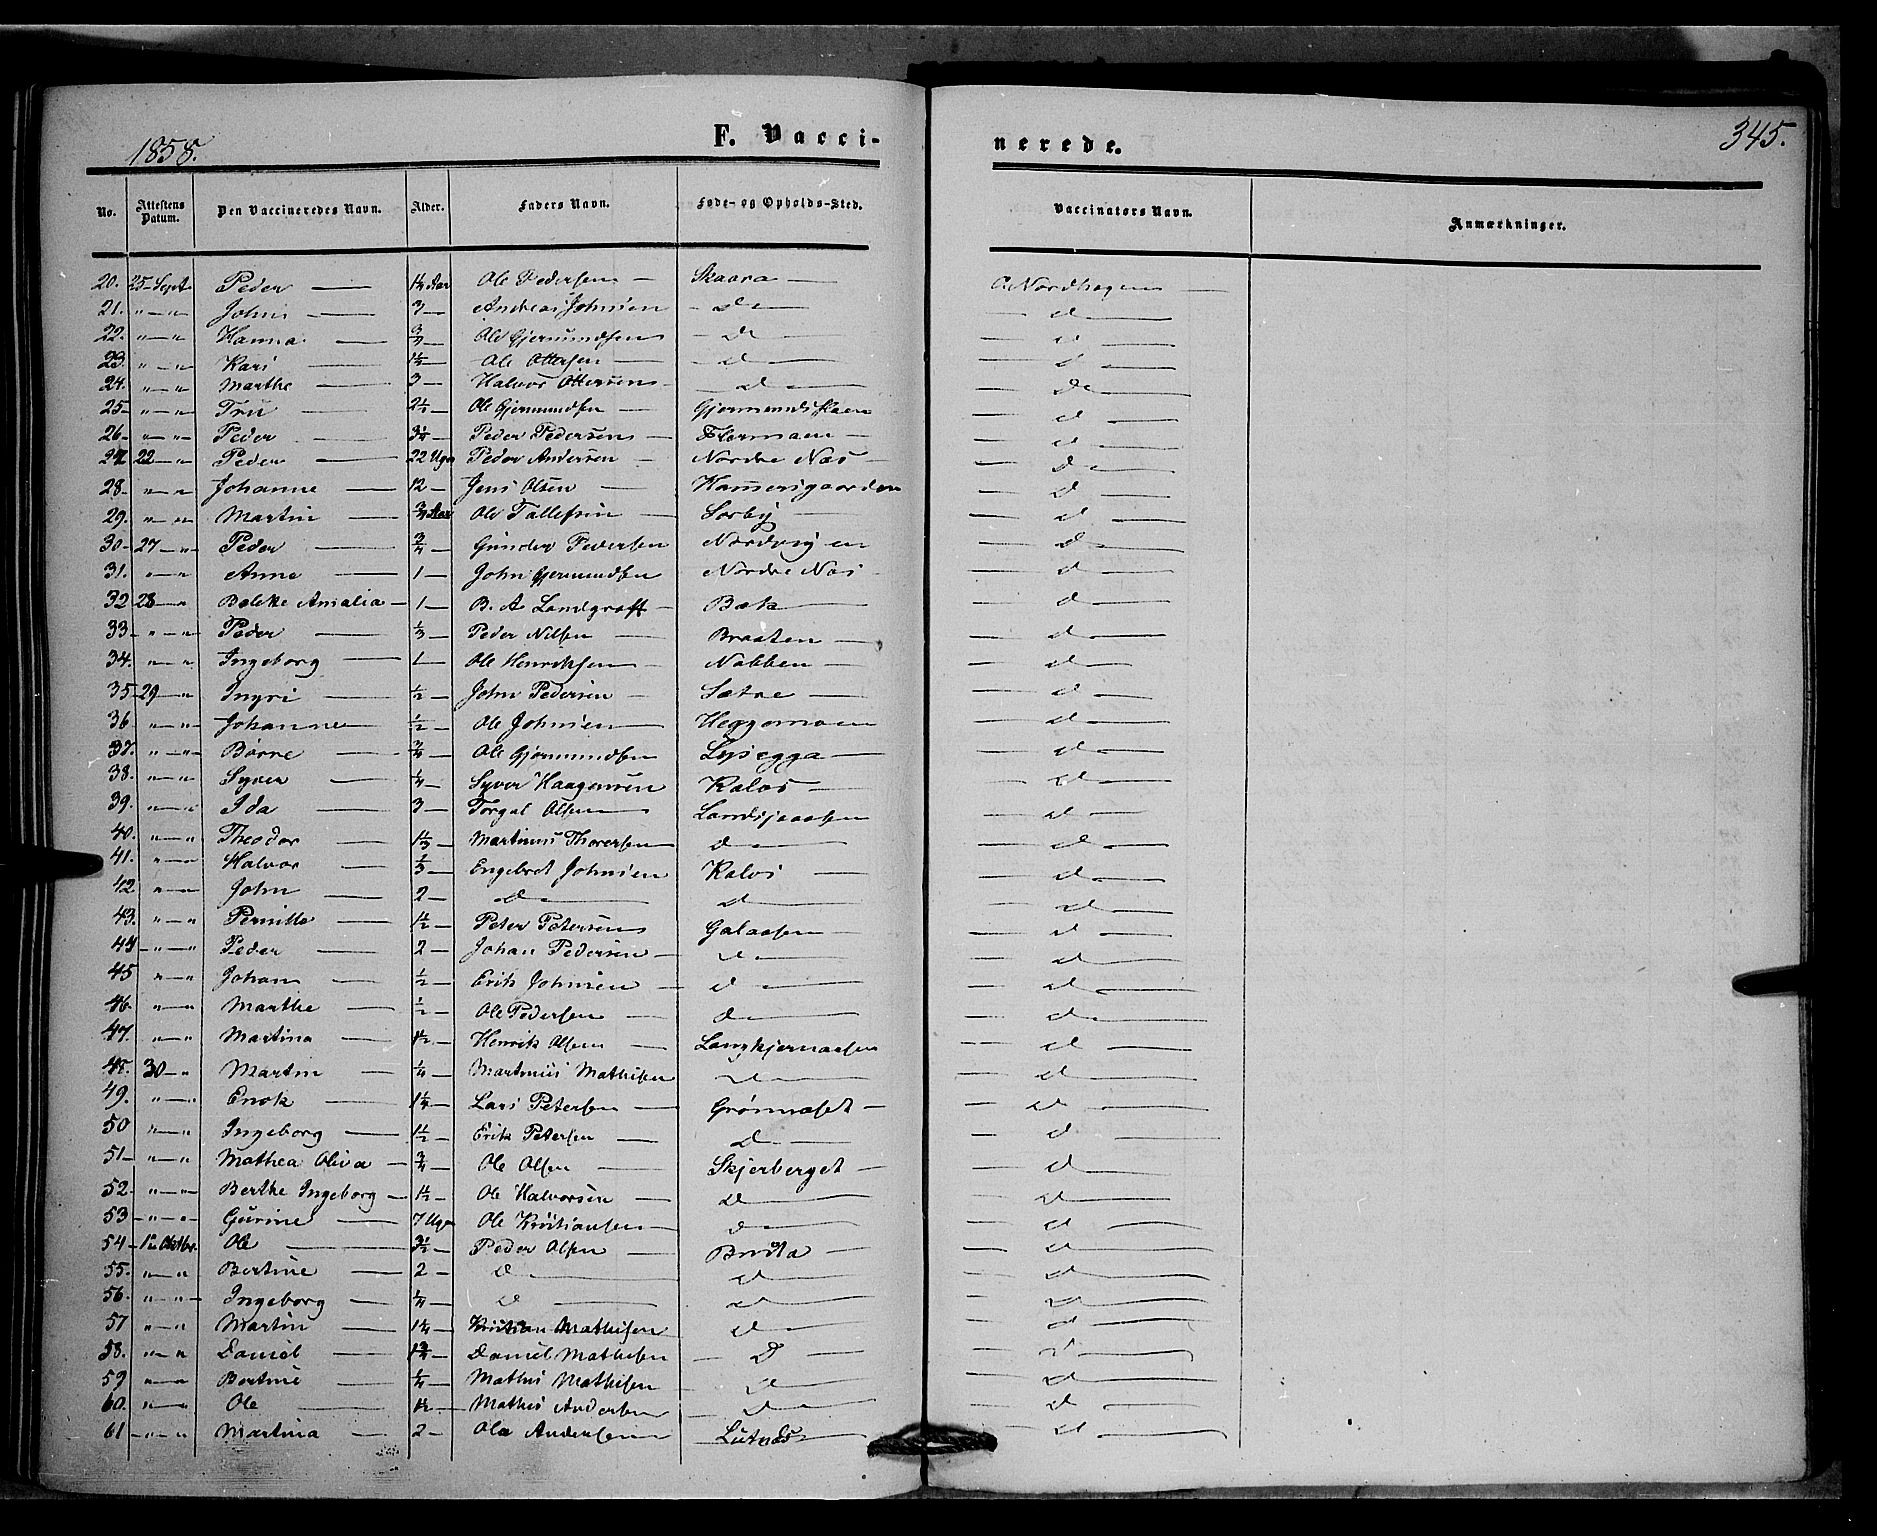 1858.
F. Vacci-
nerede.
345.
No. Attestens Datum. Den Vaccineredes Navn. Alder. Faders Navn. Føde- og Opholds-Sted. Vaccinators Navn. Anmærkninger.
20. 25 Sept Peder — 1½ Aar Ole Pedersen — Skaara — O. Nordhagen —
21. " — " John — 3 — Andreas Johnsen — d — — d —
22. " — " Hanna — Ole Gjermundsen — d — — d —
23. " — " Kari — Ole Ottersen — d — — d —
24. " — " Marthe — 3 — Halvor Ottersen — d — — do —
25 — " — " Tru — 2½ — Ole Gjermundsen — Gjermundskaen — d —
26 — " — " Peder — Peder Pedersen — Flermoen — — d —
27. 22 — " Peder — 22 Uger Peder Andersen — Nordre Næs — — d —
28 — " — " Johanne — 12 — Jens Olsen — Hammersgaarden — d —
29. " — " Martin — ¾ Aar Ole Tallefsen — Sorby — — d —
30 — 27 — " Peder — ¾ — Gunder Pedersen Nordvigen — d —
31. " — " Anne — 1 — John Gjermundsen Nordre Næs — d —
32 28 — " Bolette Amalia — 1 — B. A Landgraff — Bæk — — d —
33 — " — " Peder — ⅓ — Peder Nilsen — Braaten — — d —
34. " — " Ingeborg — 1 — Ole Henriksen — Nabben — — d —
35 — 29 — " Ingri — ½ — John Pedersen — Sætre — — d —
36 " — " Johanne — ½ — Ole Johnsen — Heggemoen — d —
37. " — " Børre — ¾ — Ole Gjermundsen Lysegga — — d —
38. " — " Syver — ¼ — Syver Haagensen Kalos — — d —
39. " — " Ida — 3 — Torgal Olsen — Landsjoaasen — d —
40. " — " Theodor — 1⅓ — Martinus Thoresen — d — — d —
41. " — " Halvor — ⅓ — Engebret Johnsen Kalos — — d —
42 " — " John — 2 — d — d — — d —
43. " — " Pernille — 1½ — Peter Petersen Galaasen — — d —
44 — " — " Peder — 2 — Johan Pedersen — d — — d —
45 " — " Johan — ½ — Erik Johnsen — d — — d —
46 " — " Marthe — ½ — Ole Pedersen — d — — d —
47. " — " Martina — 1½ — Henrik Olsen — Langkjernaasen — d —
48. 30 — " Martin — ¼ — Martinus Mathisen — d — — d —
49. " — " Enok — 1¼ — Lars Petersen — Grønnæset — — d —
50 " — " Ingeborg — 1½ — Erik Petersen — d — — d —
51 — " — " Mathea Oliva — ¾ — Ole Olsen — Skjerberget — — d —
52. " — " Berthe Ingeborg — 1½ — Ole Halvorsen — d — — d —
53 — " — " Gurine — 7 Uger Ole Kristiansen — d — — d —
54 — 1ste Oktbr. Ole — 3½ — Peder Olsen — — d —
55. " — " Bertine — 2 — d — d — — d —
56. " — " Ingeborg — ¼ — d — d — — d —
57 " — " Martin — 1¼ — Kristian Mathisen — d — — d —
58. " — " Daniel — 1¾ — Daniel Mathisen — d — — d —
59 " — " Bertine — ¼ — Mathis Mathisen — d — — d —
60. " — " Ole — 1½ — Mathis Andersen — d — — d —
61 — " — " Martina — 2 — Ole Andersen — Lutnæs — — d —